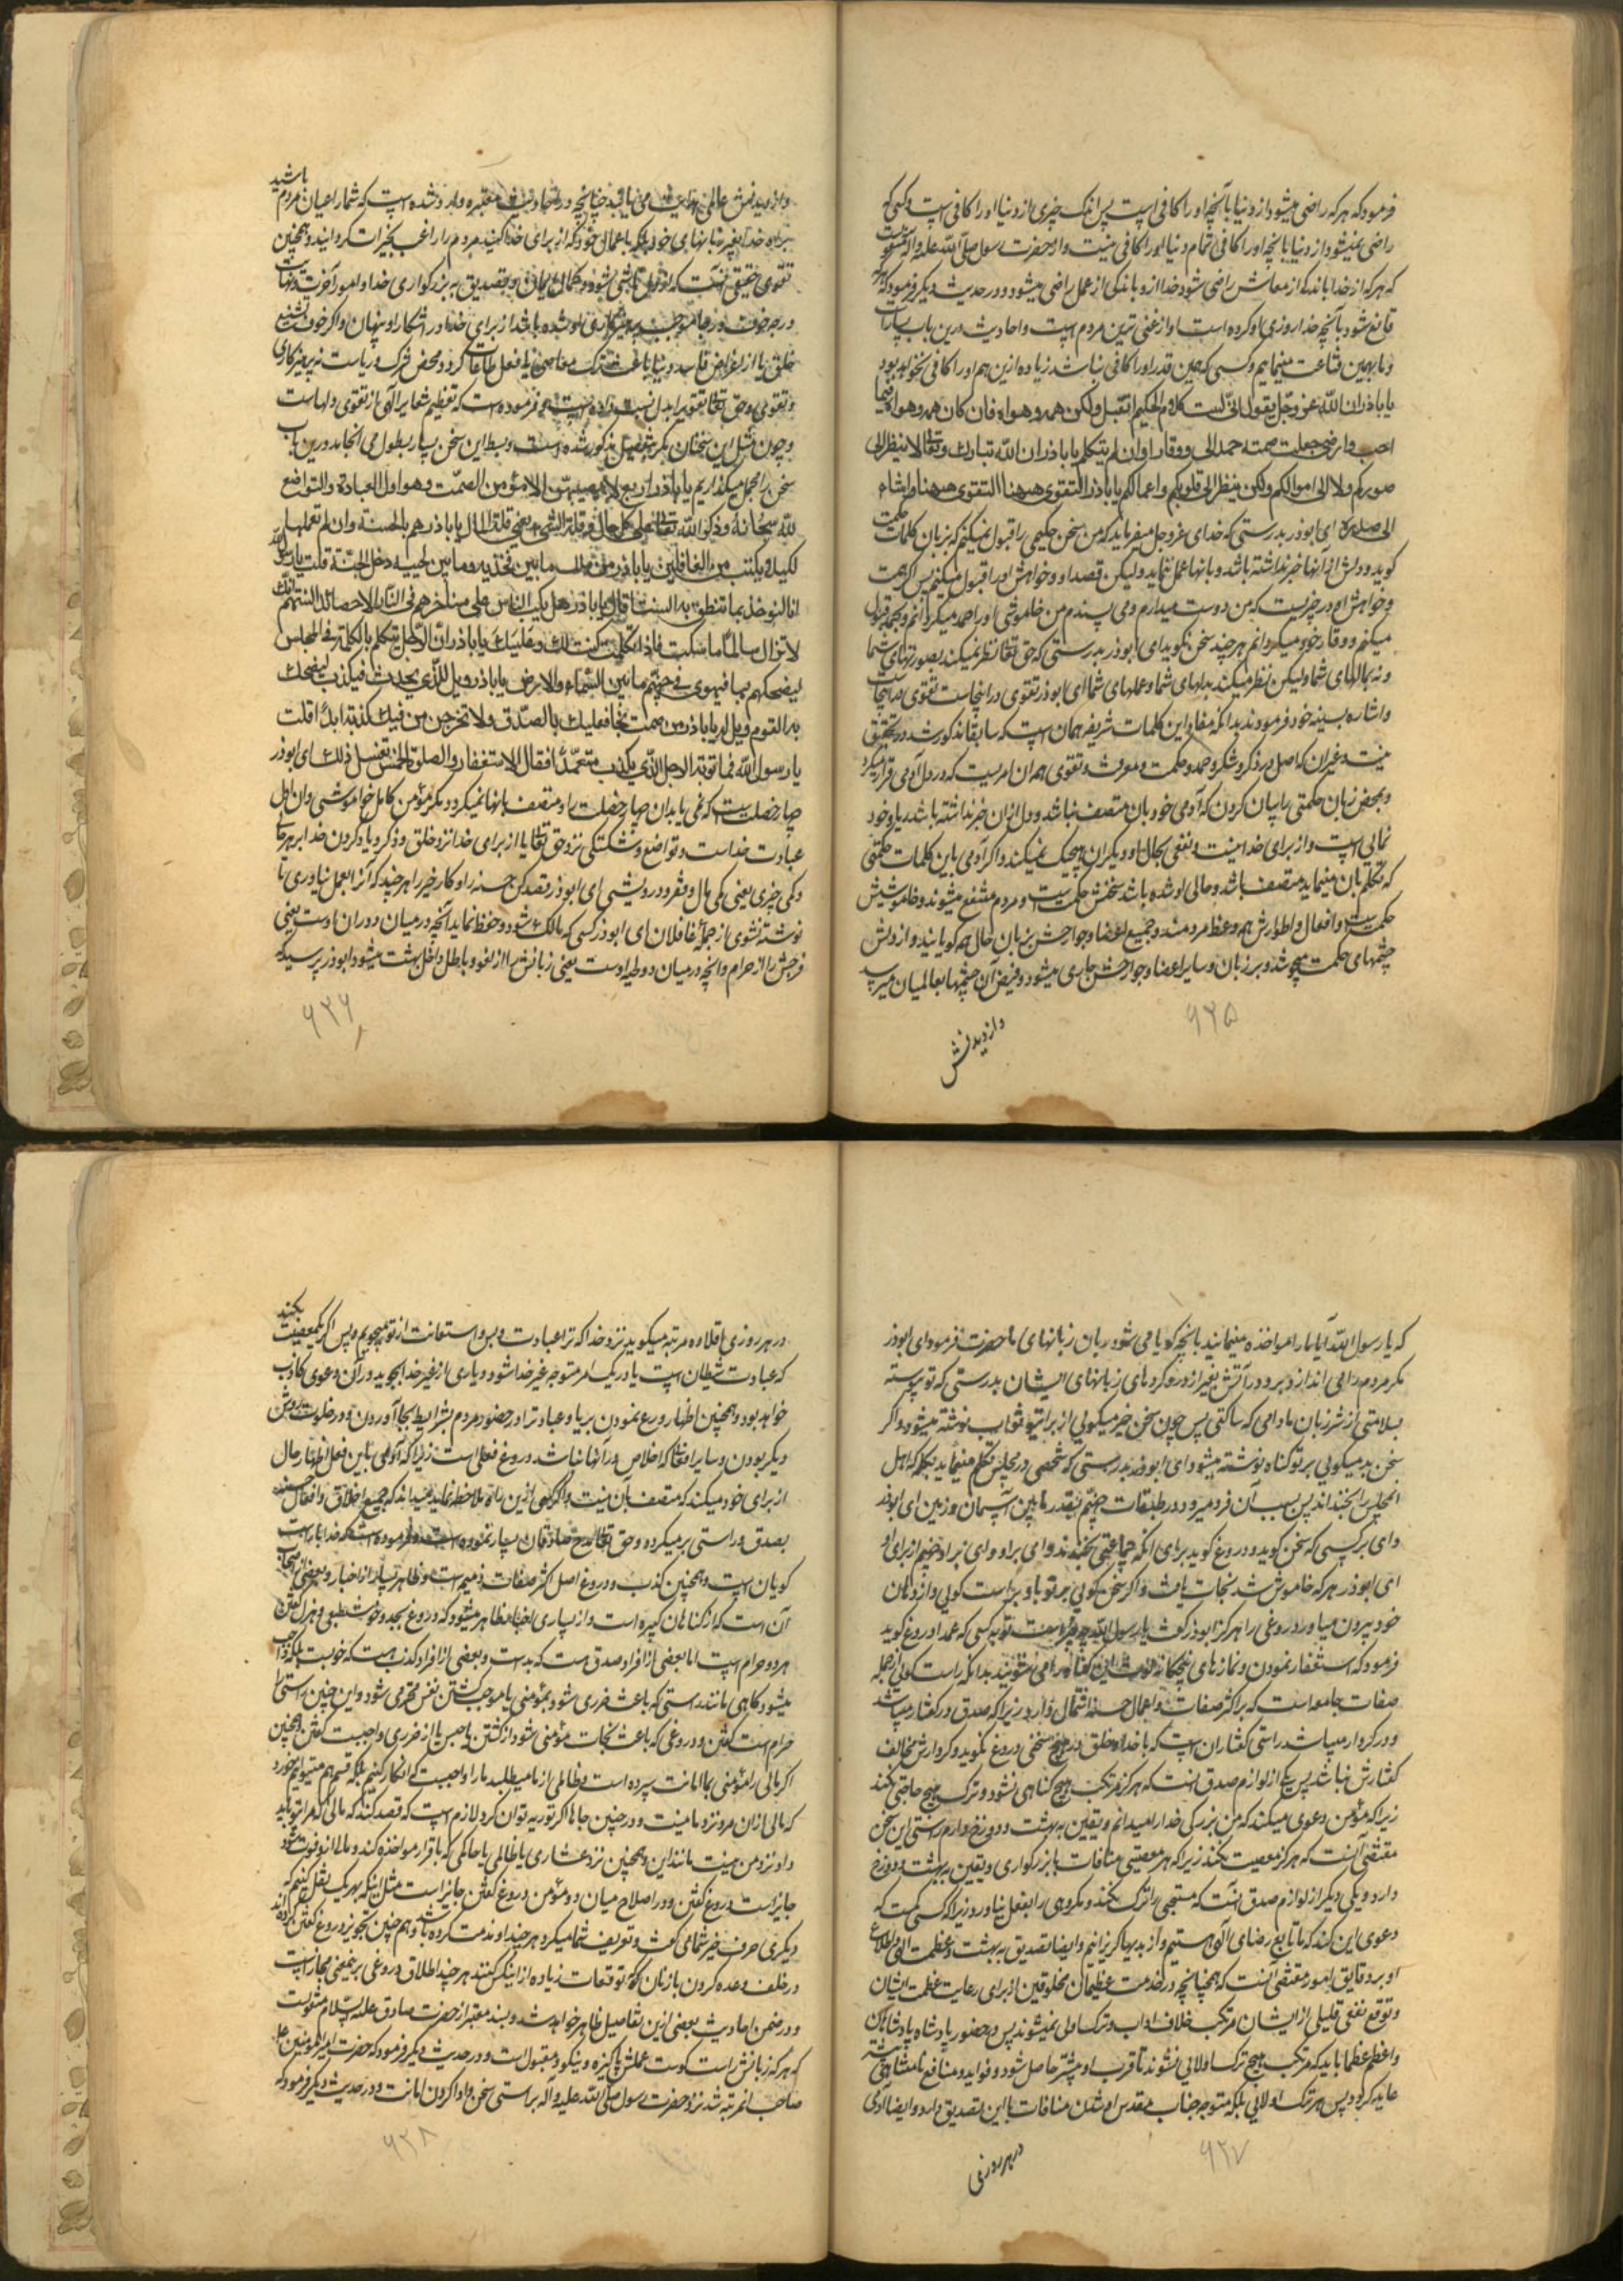 فرمود که هر که راضی میشود از دنیا بآنچه او را کافی است پس اندک چیزی از دنیا او را کافی است و کسی که
راضی نمیشود از دنیا بانچه او را کافی تمام دنیا او را کافی نیست و از حضرت رسول صلی الله علیه و آله منقولست
که هر که از خدا باندک از معاش راضی شود خدا ازو باندکی از عمل راضی میشود و در حدیث دیگر فرمود که هر که
قانع شود بآنچه خدا روزی او کرده است او از غنی ترین مردم است و احادیث درین باب بسیارست
و ما بهمین قناعت مینمایم و کسی که همین قدر او را کافی نباشد زیاده ازین هم او را کافی نخواهد بود
یا باذر ان الله عز و جل یقول انی لست کلام الحکیم اتقبل ولکن همه وهواه فان کان همه وهواه فیما
احب وارضی جعلت صمته حمدا لی ووقارا وان لم یتکلم یا باذر ان الله تبارک وتعالی لا ینظر الی
صورکم ولا الی اموالکم ولکن ینظر الی قلوبکم واعمالکم یا باذر التقوی ههنا التقوی ههنا واشار
الی صدره ای ابوذر بدرستی که خدای عز و جل میفرماید که من سخن حکیمی را قبول نمیکنم که بزبان کلمات حکمت
گوید و دلش از آنها خبر نداشته باشد و بانها عمل ننماید ولیکن قصد او و خواهش او را قبول میکنم پس اگر همت
و خواهش او در چیزیست که من دوست میدارم و می پسندم من خاموشی او را حمد میگردانم و بجمد قبول
میکنم و وقار خود میگردانم هر چند سخن نگوید ای ابوذر بدرستی که حق تعالی نظر نمیکند بصورتهای شما
و نه بمالهای شما ولیکن نظر میکند بدلهای شما و عملهای شما ای ابوذر تقوی در اینجاست تقوی در اینجاست
و اشاره بسینه خود فرمودند بدانکه مفاد این کلمات شریفه همان است که سابقا مذکور شد در تحقیق
نیت و غیر ان که اصل هر ذکر و شکر و حمد و حکمت و معرفت و تقوی همه ان امریست که در دل آدمی قرار میگیرد
و بمحض زبان حکمتی را بیان کردن که آدمی خود بان متصف نباشد و دل ازان خبر نداشته باشد ریا و خود
نمائی است و از برای خدا نیست و نفعی بحال او و دیگران هیچیک نمیکند و اگر آدمی باین کلمات حکمتی
که تکلم بان مینماید متصف باشد و حالی او شده باشد سخنش حکمتیست و مردم منتفع میشوند و خاموشیش
حکمتیست و افعال و اطوارش همه وعظ مردمند و جمیع اعضا و جوارحش بزبان حال همه گویایند و از دلش
چشمهای حکمت میجوشد و بر زبان و سایر اعضا و جوارحش جاری میشود و فیض آن چشمها بعالمیان میرسد
و از دیدنش
۹۳۵
و از دیدنش عالمی هدایت می یابند چنانچه در احادیث معتبره وارد شده است که شما داعیان مردم باشید
براه خدا بغیر زبانهای خود بلکه باعمال خود که از برای خدا کنید مردم را راغب بخیرات گردانید و همچنین
تقوی حقیقی آنست که از خوف الهی ناشی شود و کمال ایمان و تصدیق به بزرگواری خدا و امور آخرت و نهایت
درجه خوف و رجا موجب پرهیزکاری او شده باشد از برای خدا در اشکار و پنهان و اگر خوف تشنیع
خلق یا از اغراض فاسد دنیا باعث ترک معاصی یا فعل طاعات گردد محض شرک و ریاست نه پرهیزکاری
و تقوی و حق تعالی تقوی را بدل نسبت داده است و فرموده است که تعظیم شعایر الهی از تقوی دلهاست
و چون مثل این سخنان مکرر بتفصیل مذکور شده است و بسط این سخن بسیار بطول می انجامد درین باب
سخن را مجمل میگذاریم یا باذر اربع لا یصیبهن الا مؤمن الصمت وهو اول العبادة والتواضع
لله سبحانه وذکر الله تعالی علی کل حال وقلة الشیء یعنی قلة المال یا باذر هم بالحسنة وان لم تعملها
لکیلا تکتب من الغافلین یا باذر من ملک ما بین فخذیه وما بین لحییه دخل الجنة قلت یا رسول الله
انا لنؤخذ بما تنطق به السنتنا قال یا باذر هل یکب الناس علی مناخرهم فی النار الا حصائد السنتهم انک
لا تزال سالما ما سکت فاذا تکلمت کتب لک او علیک یا باذر ان الرجل یتکلم بالکلمة فی المجلس
لیضحکهم بها فیهوی فی جهنم ما بین السماء والارض یا باذر ویل للذی یحدث فیکذب لیضحک
به القوم ویل له یا باذر من صمت نجا فعلیک بالصدق ولا تخرجن من فیک کذبة ابدا قلت
یا رسول الله فما توبة الرجل الذی یکذب متعمدا فقال الاستغفار والصلوة الخمس تغسل ذلک ای ابوذر
چهار خصلت است که نمی یابد ان چهار خصلت را و متصف بانها نمیگردد مگر مؤمن کامل خواموشی و ان اول
عبادت خداست و تواضع و شکستگی نزد حق تعالی یا از برای خدا نزد خلق و ذکر و یاد کردن خدا بر هر حالی
و کمی چیزی یعنی کمی مال و فقر و درویشی ای ابوذر قصد کن حسنه را و کار خیر را هر چند که آنرا بعمل نیاوری تا
نوشته نشوی از جمله غافلان ای ابوذر کسی که مالک شود و حفظ نماید آنچه در میان دو ران اوست یعنی
فرجش را از حرام و انچه در میان دو طیه اوست یعنی زبانش را از لغو و باطل داخل بهشت میشود ابوذر پرسید که
۹۳۶
که یا رسول الله آیا ما را مواخذه مینمایند بانچه گویا می شود بان زبانهای ما حضرت فرمود ای ابوذر
مگر مردم را می اندازد برو در آتش بغیر از درو کردهای زبانهای ایشان بدرستی که تو پیوسته
بسلامتی از شر زبان مادامی که ساکتی پس چون سخن خیر میگویی از برای تو ثواب نوشته میشود و اگر
سخن بد میگویی بر تو گناه نوشته میشود ای ابوذر بدرستی که شخصی در مجلس تکلم مینماید بکلمه که اهل
انمجلس را بخنداند پس بسبب آن فرو میرود در طبقات جهنم بقدر مابین آسمان و زمین ای ابوذر
وای بر کسی که سخن گوید و دروغ گوید برای انکه جماعتی بخندند وای بر او وای بر او جهنم از برای او
ای ابوذر هر که خاموش شد نجات یافت و اگر سخن گویی بر تو باد براست گویی و از دهان
خود بیرون میاور دروغی را هرگز ابوذر گفت یا رسول الله چه چیز است توبه کسی که عمدا دروغ گوید
فرمود که استغفار نمودن و نمازهای پنجگانه لوث این گناه را می شویند بدانکه راست گویی از جمله
صفات جامعه است که بر اکثر صفات و اعمال حسنه اشتمال دارد زیرا که صدق در گفتار میباشد
و در کردار میباشد راستی گفتار ان است که با خدا و خلق در هیچ سخنی دروغ نگوید و کردارش مخالف
گفتارش نباشد پس یکی از لوازم صدق انست که هرگز مرتکب هیچ گناهی نشود و ترک هیچ واجبی نکند
زیرا که مؤمن دعوی میکند که من بزرگی خدا را میدانم و یقین به بهشت و دوزخ دارم راستی این سخن
مقتضی آنست که هرگز معصیت نکند زیرا که هر معصیتی منافات با بزرگواری و یقین به بهشت و دوزخ
دارد و یکی دیگر از لوازم صدق آنست که مستحبی را ترک نکند و مکروهی را بفعل نیاورد زیرا که کسی که
دعوی این کند که ما تابع رضای الهی هستیم و از بدیها گریزانیم و ایضا تصدیق به بهشت و عظمت الهی و اطلاع
او بر دقایق امور مقتضی آنست که همچنانچه در خدمت عظیمان مخلوقین از برای رعایت عظمت ایشان
و توقع نفعی قلیلی از ایشان مرتکب خلاف اداب و ترک اولی نمیشوند پس در حضور پادشاه پادشاهان
و اعظم عظما باید که مرتکب هیچ ترک اولایی نشوند تا قرب او بیشتر حاصل شود و فواید و منافع نامتناهی بیشتر
عاید گردد پس هر ترک اولایی بلکه متوجه جناب مقدس او نشدن منافات با این تصدیق دارد و ایضا آدمی
در هر روزی
۹۳۷
در هر روزی اقلا ده مرتبه میگوید نزد خدا که ترا عبادت و بس و استعانت از تو میجویم و بس اگر یک معصیت بکند
که عبادت شیطان است یا در یک امر متوجه غیر خدا شود و یاری از غیر خدا بجوید در آن دعوی کاذب
خواهد بود و همچنین اظهار ورع نمودن بریا و عبادت را در حضور مردم بشرایط بجا آوردن و در خلوت بروش
دیگر بودن و سایر افعال که اخلاص در آنها نباشد دروغ فعلی است زیرا که آدمی باین فعل اظهار حال
از برای خود میکند که متصف بآن نیست و اگر کسی ازین راه ملاحظه نماید میداند که جمیع اخلاق و افعال حسنه
بصدق و راستی بر میگردد و حق تعالی مدح صادقان بسیار نموده است و فرموده است که خدا با راست
گویان است و همچنین کذب و دروغ اصل اکثر صفات ذمیمه است و ظاهر بسیار از اخبار و بعضی از اصحاب
آن است که از گناهان کبیره است و از بسیاری اخبار ظاهر میشود که دروغ بجد و خوش طبعی و هزل گفتن
هر دو حرام است اما بعضی از افراد صدق هست که بد است و بعضی از افراد کذب هست که خوبست بلکه واجب
میشود گاهی مانند راستی که باعث ضرری شود بمؤمنی یا موجب کشتن نفس محترمی شود و این چنین راستی را
حرام است گفتن و دروغی که باعث نجات مؤمنی شود از کشتن یا حبس یا از ضرری واجبست گفتن همچنین
اگر مالی را مؤمنی بما امانت سپرده است و ظالمی از ما میطلبد ما را واجبست که انکار کنیم بلکه قسم هم میتوانیم خورد
که مالی ازان مرد نزد ما نیست و در چنین جاها اگر توریه توان کرد لازم است که قصد کند که مالی که مرا بتو باید
داد نزد من نیست مانند این و همچنین نزد عشاری یا ظالمی یا حاکمی که باقرار مواخذه کند و مال از و فوت شود
جایز است دروغ گفتن و در اصلاح میان دو مؤمن دروغ گفتن جایز است مثل اینکه بهر یک نقل کنیم که
دیگری حرف خیر شما می گفت و تعریف شما میکرد هر چند او مذمت کرده باشد و هم چنین تجویز دروغ گفتن کرده اند
در خلف وعده کردن با زنان که توقعات زیاده از اینکس کنند هر چند اطلاق دروغی بر بعضی مجاز است
و در ضمن احادیث بعضی ازین تفاصیل ظاهر خواهد شد و بسند معتبر از حضرت صادق علیه السلام منقولست
که هر که زبانش راست گوست عملش پاکیزه و نیکو و مقبول است و در حدیث دیگر فرمود که حضرت امیر المؤمنین علیه
صاحب انمرتبه شد نزد حضرت رسول صلی الله علیه و اله براستی سخن و ادا کردن امانت و در حدیث دیگر فرمود که
۹۳۸